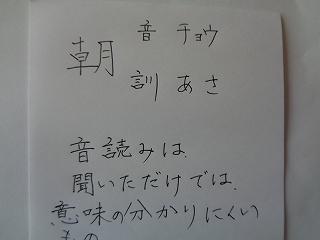 朝 音 チョウ
訓 あさ
音読みは、
聞いただけでは、
意味の分かりにくい
もの